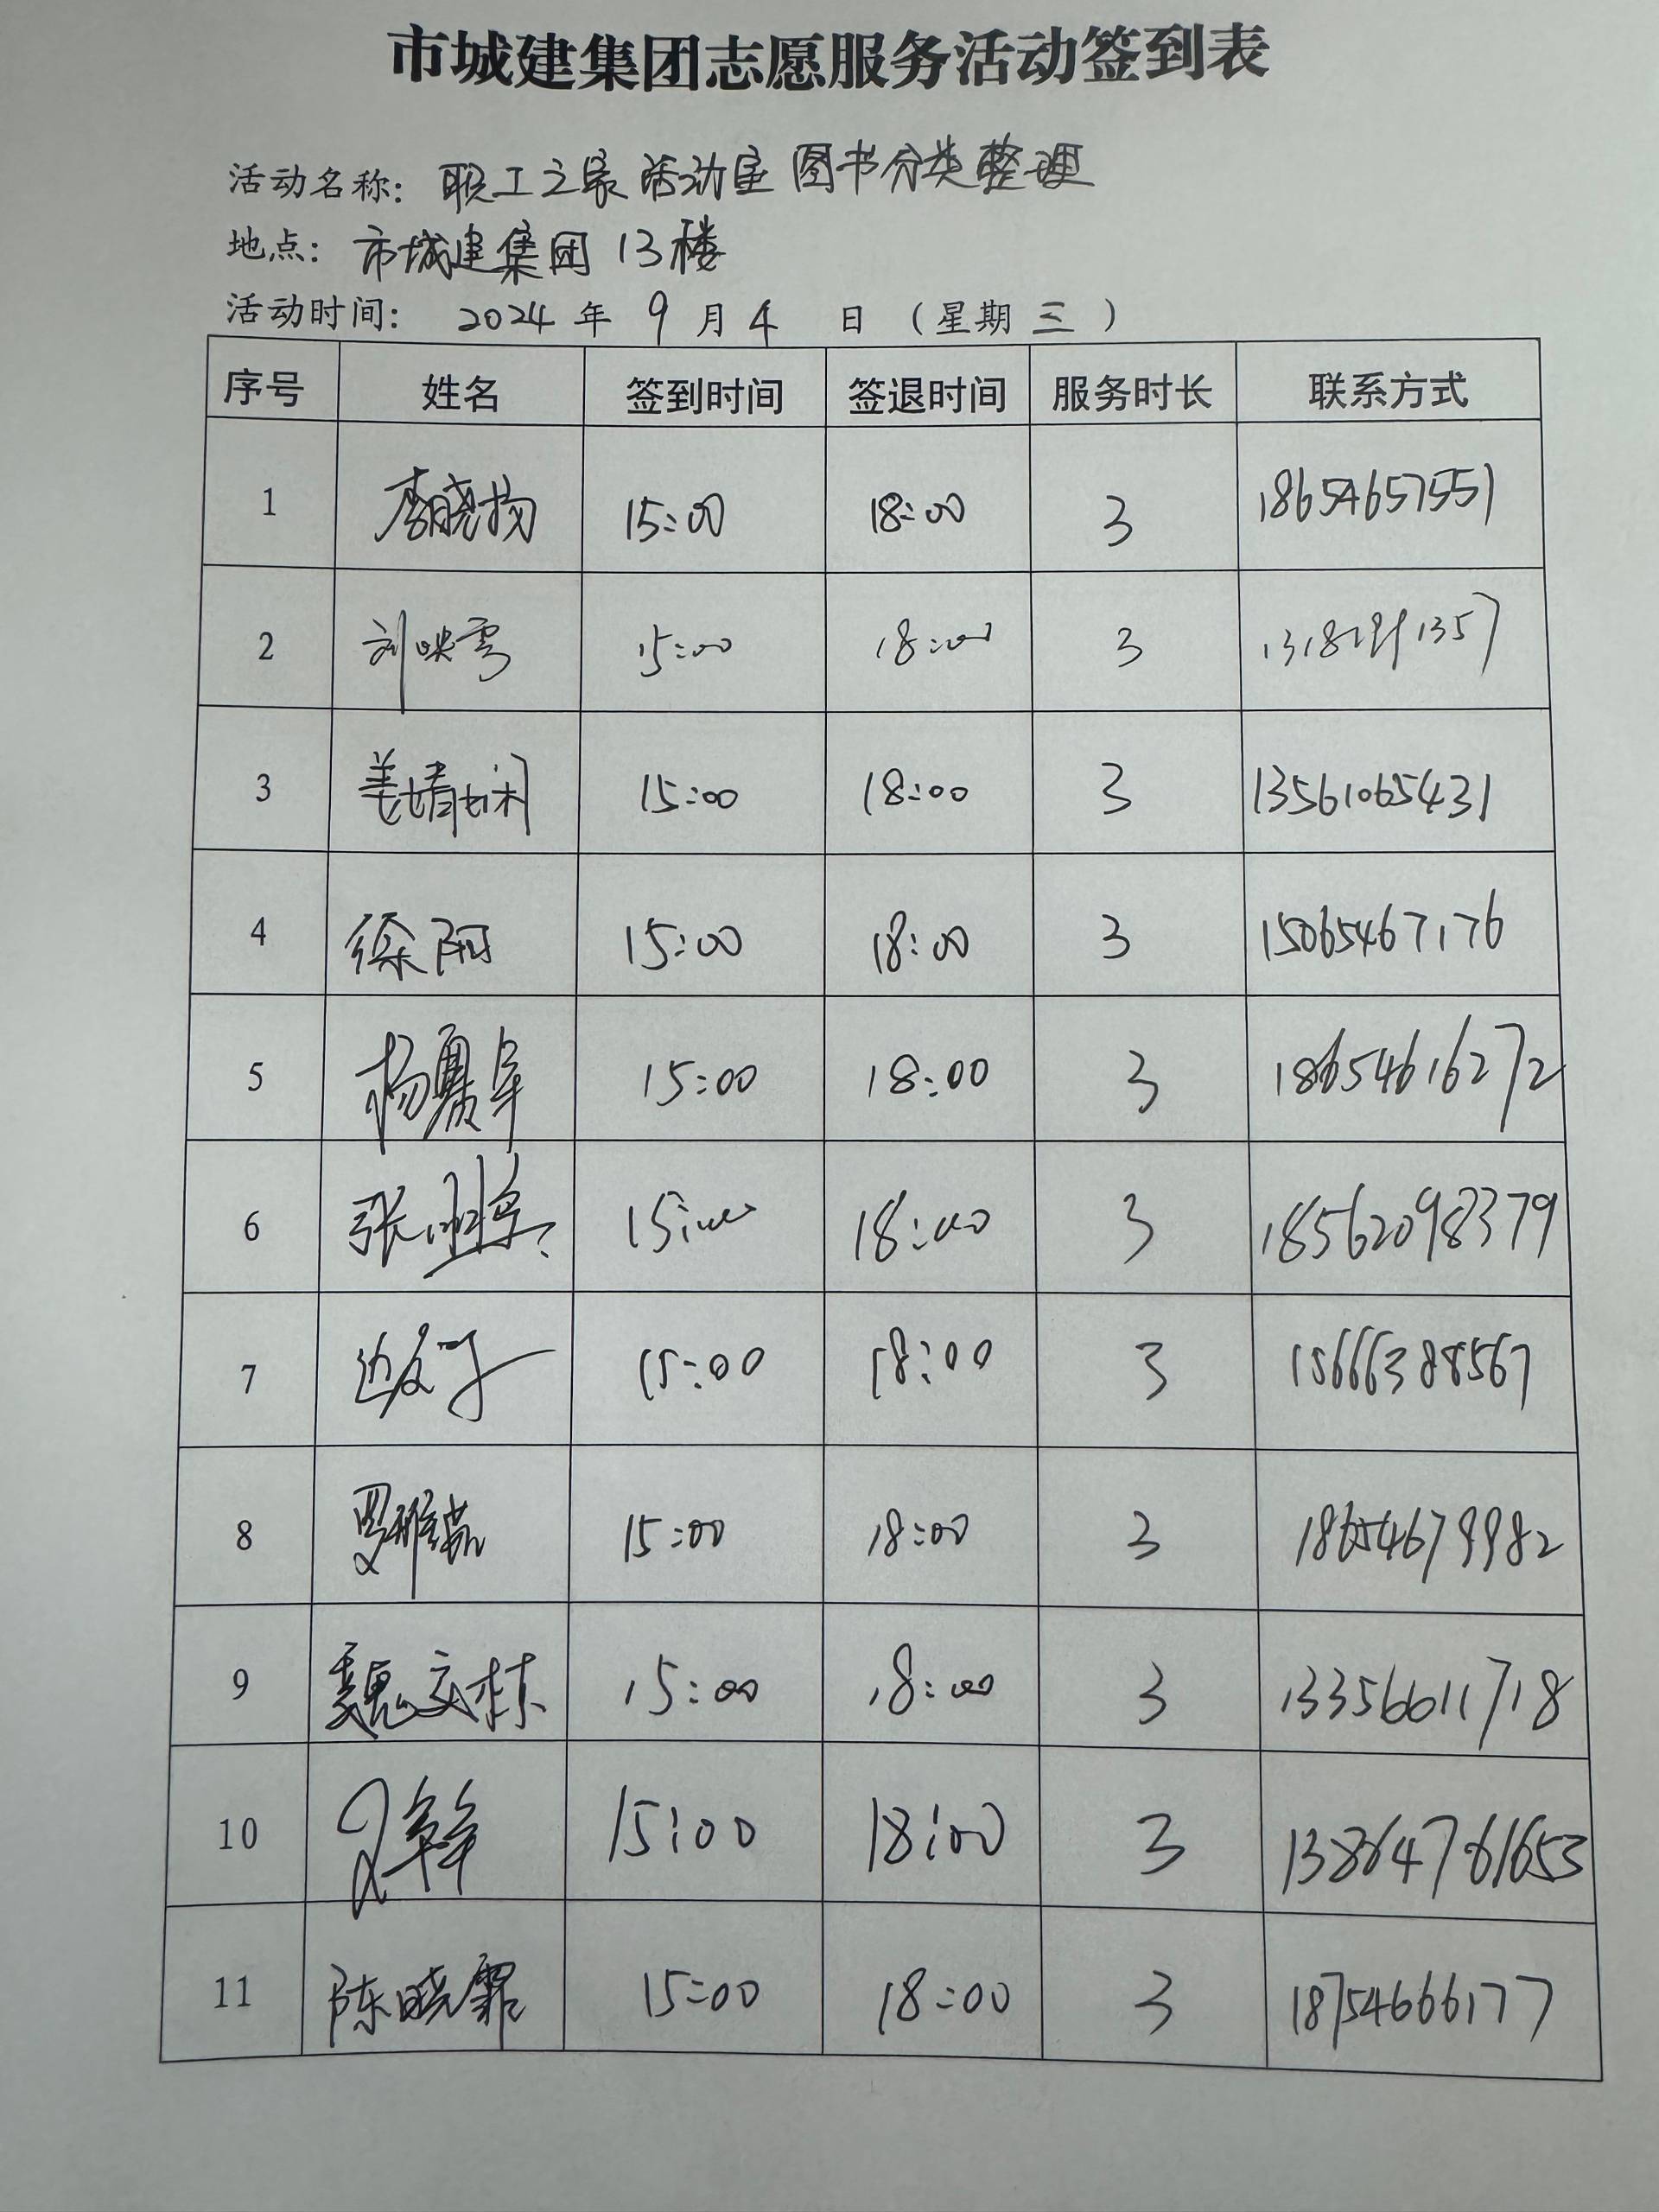 市城建集团志愿服务活动签到表
活动名称：职工之家活动室图书分类整理
地点：市城建集团13楼
活动时间：2024年9月4日（星期三）
序号 姓名 签到时间 签退时间 服务时长 联系方式
1 李晓扬 15:00 18:00 3 18654657551
2 刘映雪 15:00 18:00 3
3 姜婧娴 15:00 18:00 3 13561065431
4 徐阳 15:00 18:00 3 15065467176
5 杨 15:00 18:00 3 18654616272
6 张 15:00 18:00 3 18562098379
7 边 15:00 18:00 3 15666388567
8 罗雅茹 15:00 18:00 3 18654679982
9 魏文栋 15:00 18:00 3 13356611718
10 15:00 18:00 3 13864761653
11 陈晓霏 15:00 18:00 3 18754666177